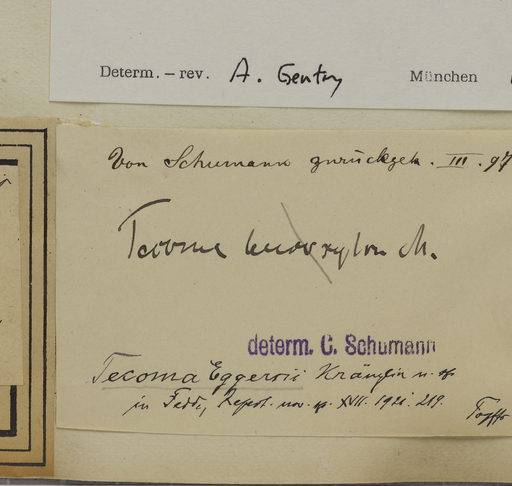 Determ. – rev. A. Gentry München
Von Schumann zurückgek. III. 97
Tecoma leucoxylon M.
determ. C. Schumann
Tecoma Eggersii Kränzlin n. sp.
in Fedde, Repert. nov. sp. XVII. 1921. 219.